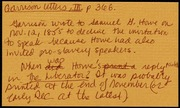 Garrison letters III p 366.
Garrison wrote to Samuel G. Howe on
Nov. 12, 1855 to decline the invitation
to speak because Howe had also
invited pro-slavery speakers.
When was Howe's reply
in the Liberator? It was probably
printed at the end of November or
early Dec. at the latest)